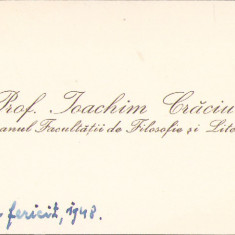 Prof. Ioachim Crăciu
anul Facultății de Filosofie și Lite
fericit, 1948.